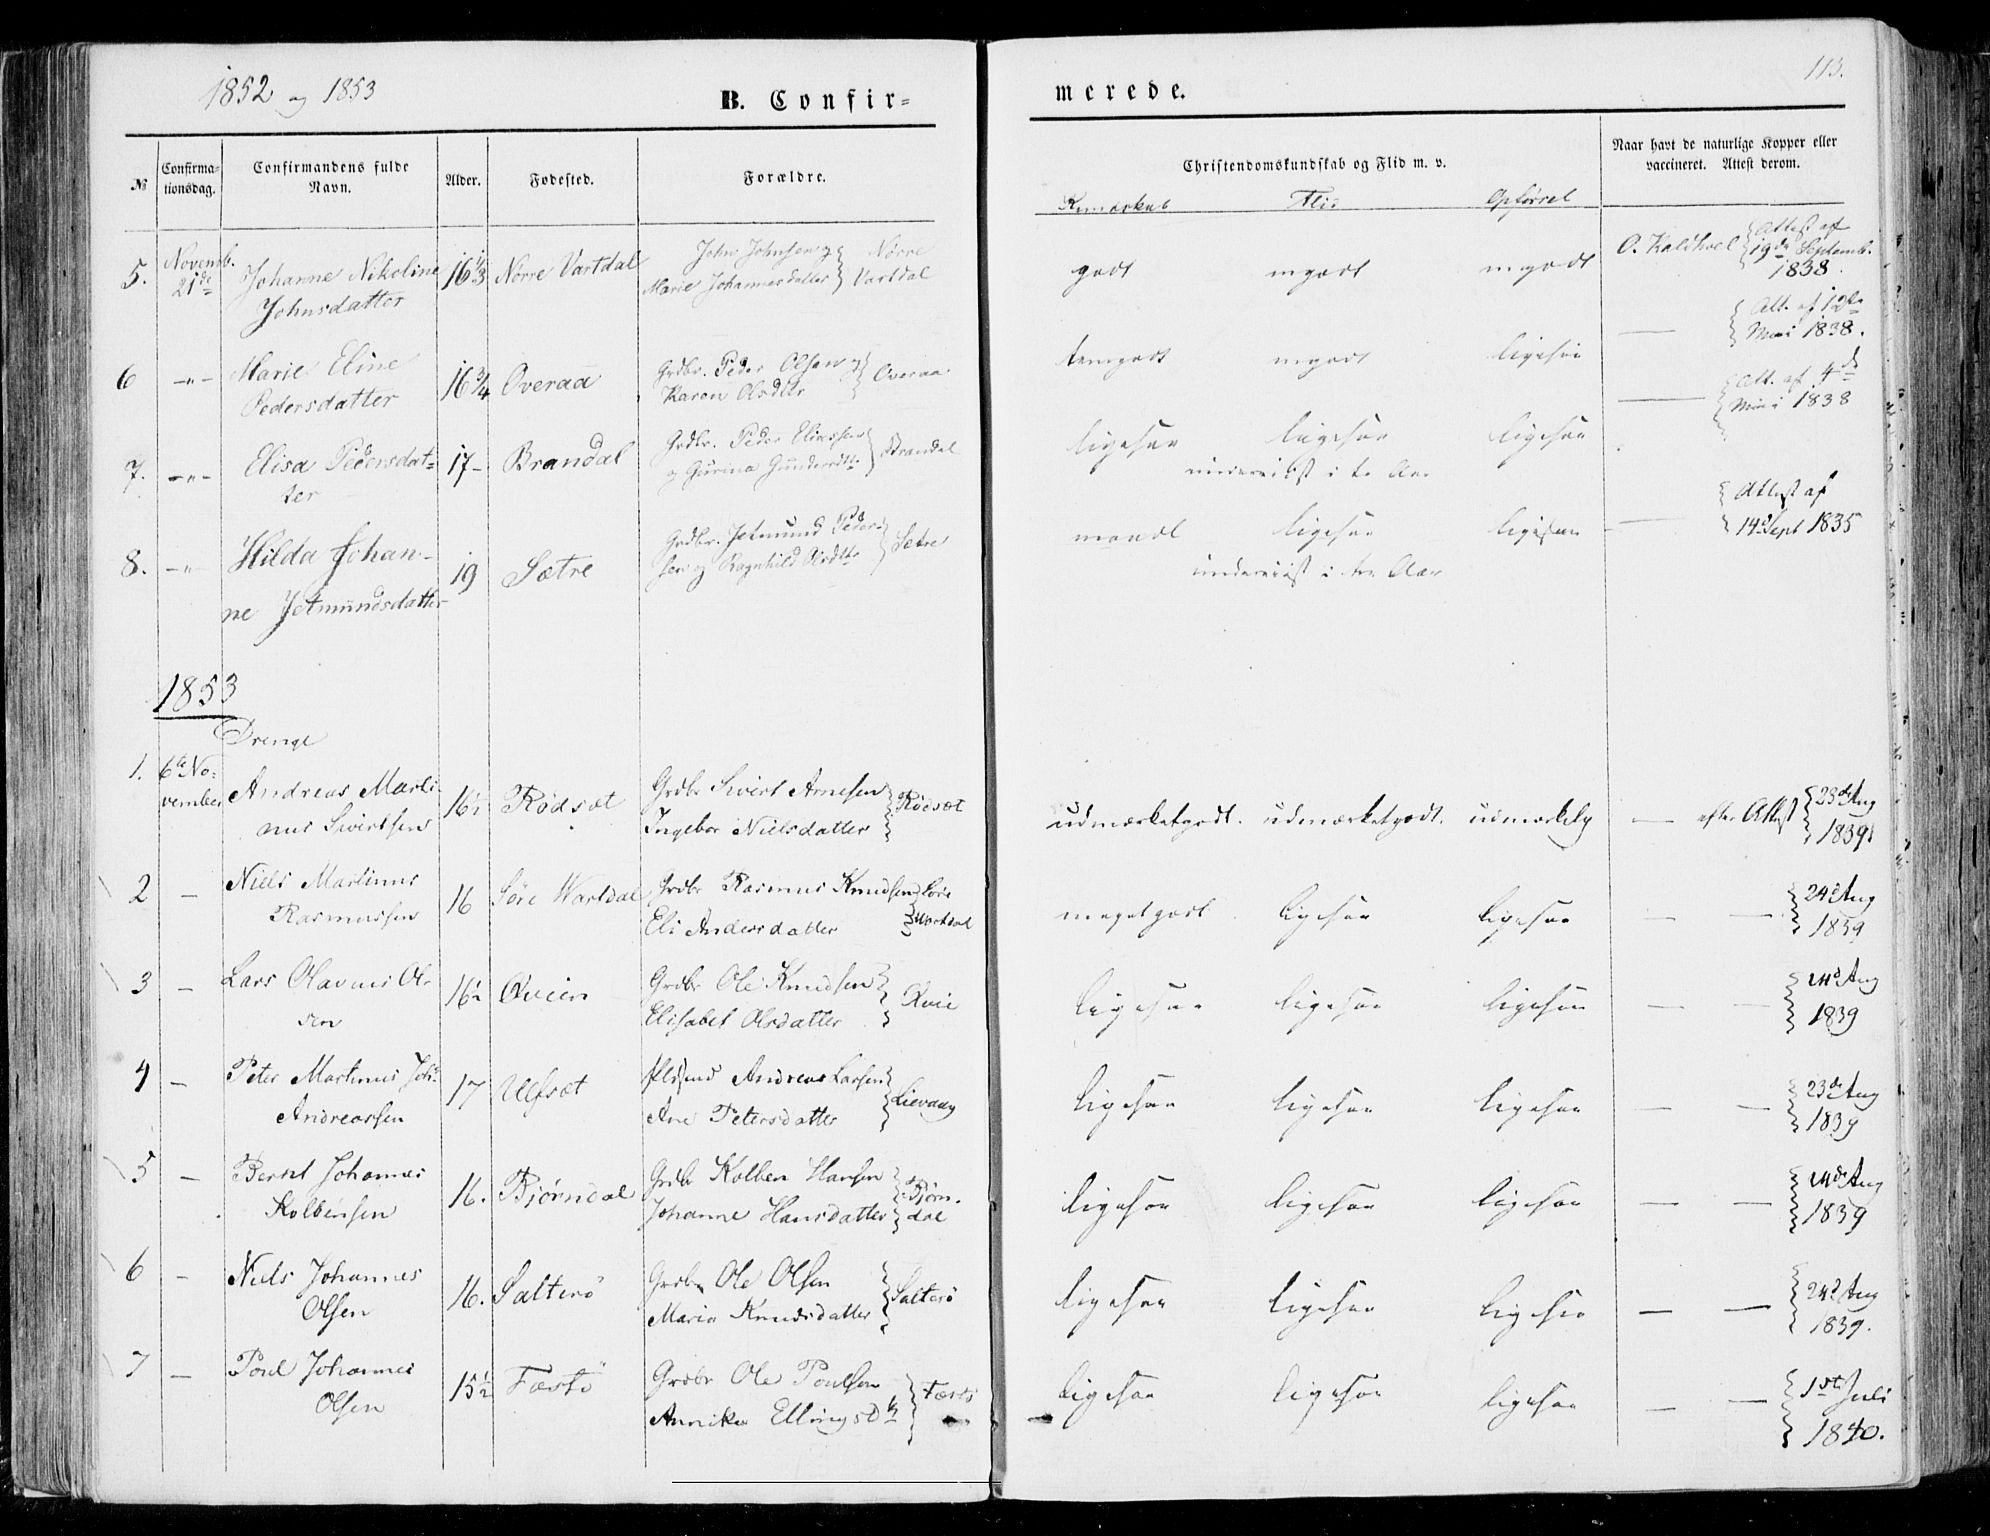 1852 og 1853
B. Confir=
merede.
113.
№
Confirma-
tionsdag.
Confirmandens fulde
Navn.
Alder.
Fødested.
Forældre.
Christendomskundskab og Flid m. v.
Naar havt de naturlige Kopper eller
vaccineret. Attest derom.
Kundskab Flid Opførsel
5. Novemb.
21de
Johanne Nikoline
Johnsdatter
16 1/3 Nörre Vartdal
John Johnsen og
Marie Johannesdatter
Nörre
Vartdal
godt mgodt mgodt
O. Kaldhol
Attest af
19de Septemb.
1838.
6 -"- Marie Eline
Pedersdatter
16 3/4 Overaa
Grdbr. Peder Olsen og
Karen Olsdtter
Overaa
temgodt mgodt ligesaa
—
Att. af 12te
Mai 1838.
7. -"- Elisa Pedersdat=
ter
17- Brandal
Grdbr. Peder Eliassen
og Gurina Gundersdtt.
Brandal
ligesaa ligesaa ligesaa
underviist i to Aar
—
Att. af 4de
Mai 1838
8. -"- Hilda Johan-
ne Jetmundsdatter
19 Sætre
Grdbr. Jetmund Peder-
sen og Ragnhild Olsdtt.
Sætre
maadl ligesaa ligesaa
underviist i tre Aar
—
Attest af
14d Sept 1835
1853
Drenge
1. 6te No-
vember
Andreas Marti-
nus Sivertsen
16½ Rödsæt
Grdbr Sivert Arnesen
Ingebor Nielsdatter
Rödsæt
udmærketgodt. udmærketgodt. udmærkelig
— efter Attest
23de Aug
1839
2 — Niels Martinus
Rasmussen
16 Söre Wartdal
Grdbr Rasmus Knudsen
Eli Andersdatter
Söre
Wartdal
megetgodt ligesaa ligesaa
— —
24d Aug
1839
3 — Lars Olavus Ol-
sen
16½ Qvien
Grdbr Ole Knudsen
Elisabet Olsdatter
Qvie
ligesaa ligesaa ligesaa
— —
14d Aug
1839
4 — Peter Martinus Joh:
Andreassen
17 Ulfsæt
Andreas Larsen
Ane Petersdatter
Lievaag
ligesaa ligesaa ligesaa
— —
23de Aug
1839
5 — Bernt Johannes
Kolbensen
16. Bjørndal
Grdbr Kolben Hansen
Johanne Hansdatter
Bjørn-
dal
ligesaa ligesaa ligesaa
— —
14de Aug
1839
6 — Niels Johannes
Olsen
16. Salterö
Grdbr Ole Olsen
Maria Knudsdatter
Salterö
ligesaa ligesaa ligesaa
— —
24d Aug
1839.
7 — Poul Johannes
Olsen
15½ Fæstö
Grdbr Ole Poulsen
Annika Ellingsdtr
Fæstö
ligesaa ligesaa ligesaa
— —
1st Juli
1840.